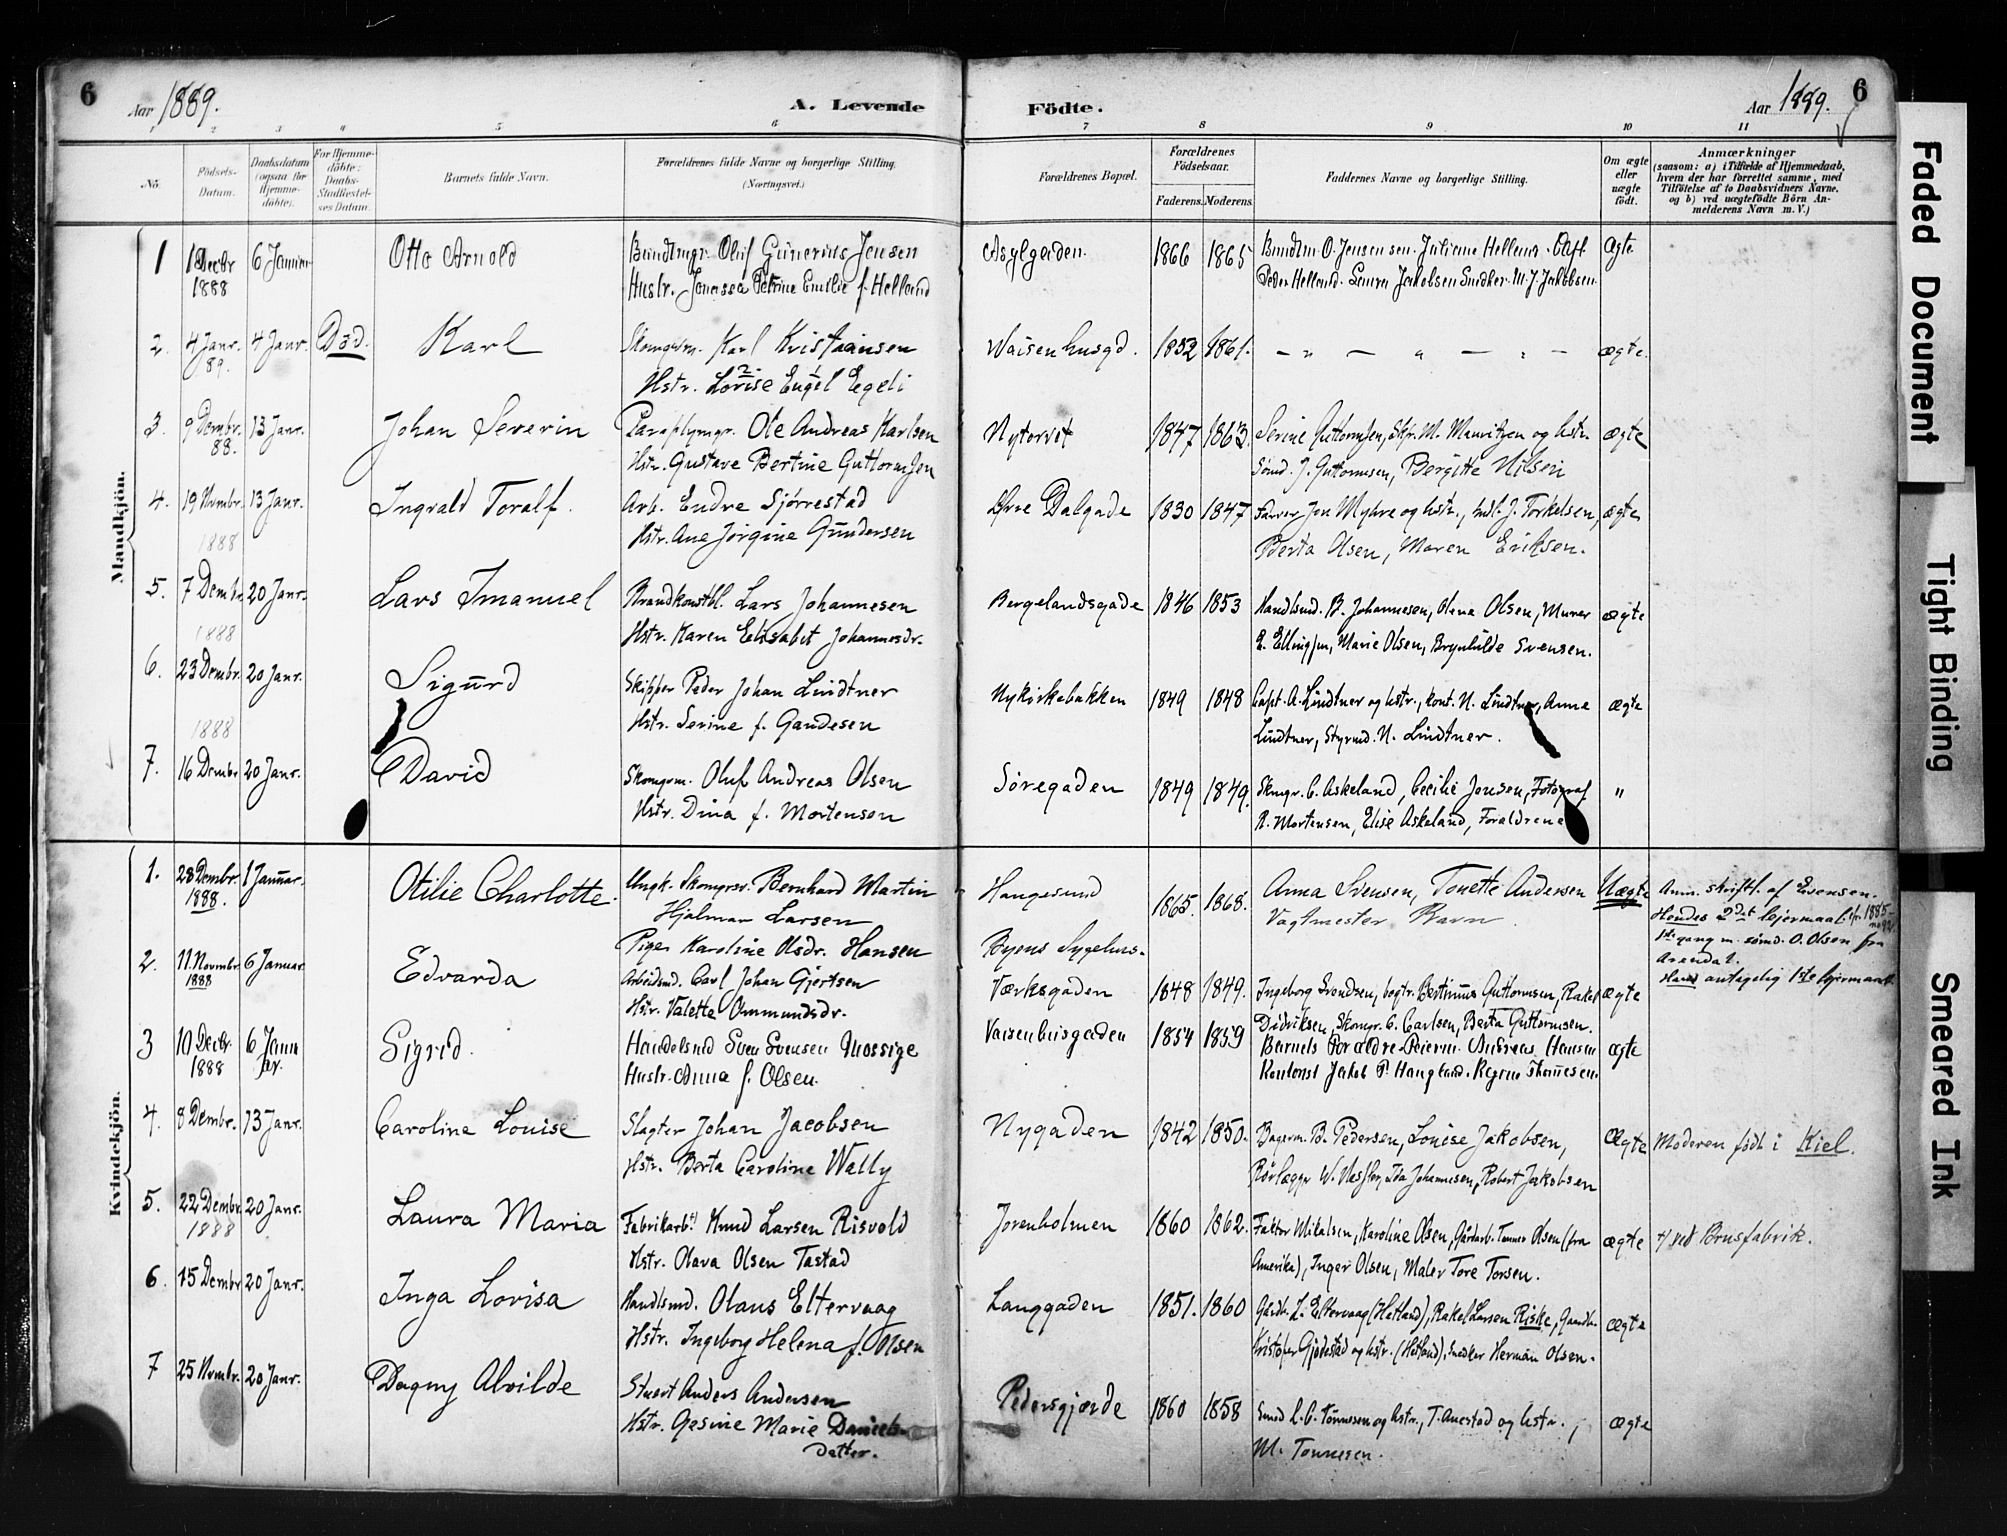 6
Aar 1889.
A. Levende
Födte.
Aar 1889.
6
1 2 3 4 5 6 7 8 9 10 11
No.
Födsels-Datum.
Daabsdatum (ogsaa for Hjemme-döbte).
For Hjemme-döbte: Daabs-Stadfæstel-ses Datum.
Barnets fulde Navn.
Forældrenes fulde Navne og borgerlige Stilling. (Næringsvei.)
Forældrenes Bopæl.
Forældrenes Födselsaar.
Faderens. Moderens.
Faddernes Navne og borgerlige Stilling.
Om ægte eller uægte födt.
Anmærkninger
(saasom: a) i Tilfælde af Hjemmedaab, hvem der har forrettet samme, med Tilföielse af to Daabsvidners Navne, og b) ved uægtefödte Börn An-melderens Navn m. V.)
Mandkjön.
1 1 Decbr 1888 6 Januar Otto Arnold Bundtmgr. Oluf Gunerius Jensen Asylgaden. 1866 1865 Bundtm O. Jensen Juliane Helland. Ægte
Hustr. Jonassa Petrine Emilie f. Helland Peder Helland. Jakobsen Snedker. M. J. Jakobsen.
2. 4 Janr. 89. 4 Janr. Död. Karl Skomgrm. Karl Kristiansen Waisenhusgd. 1852 1861. – " – " – " – ægte.
Hstr. Lovise Engel Egeli
3. 9 Dembr. 88. 13 Janr. Johan Severin Paraplymgr. Ole Andreas Karlsen Nytorvet 1847 1863. Serine Guttormsen, Skpr. M. Mauritzen og hstr. ægte
Hstr. Gustave Bertine Guttormsen Sömd. J. Guttormsen, Bergitte Nilsen
4. 19 Nvmbr. 1888 13 Janr. Ingvald Toralf. Arb. Endre Sjørrestad Øvre Dalgade 1830 1847 Farver Jon Myhre og hstr., J. Torkelsen, ægte
Hstr. Ane Jorgine Gundersen Berta Olsen, Maren Eriksen.
5. 7 Dembr. 1888 20 Janr. Lars Imanuel Brandkonstbl. Lars Johannesen Bergelandsgade 1846 1853 Handlsmd. B. Johannesen, Olena Olsen, Murer ægte
Hstr. Karen Elisabet Johannesdr. E. Ellingsen, Marie Olsen, Brynhilde Svensen.
6. 23 Dembr. 1888 20 Janr. Sigurd Skipper Peder Johan Lindtner Nykirkebakken 1849 1848 Capt. A. Lindtner og hstr., kont. N. Lindtner, Anna ægte
Hstr. Serine f. Gandesen Lindtner, Styrmd. N. Lindtner.
7. 16 Dembr 20 Janr. David Skomgrm. Oluf Andreas Olsen Søregaden 1849 1849. Skmgr. C. Askeland, Cecilie Jonsen, Fotograf "
Hstr. Dina f. Mortensen R. Mortensen, Elise Askeland, Forældrene
Kvindekjön.
1. 28 Dembr. 1888. 1 Januar. Otilie Charlotte. Ungk. Skomgrsv. Bernhard Martin Haugesund 1865. 1868. Anna Svensen, Tonette Andersen Uægte Anm. skriftl. af Svensen.
Hjalmar Larsen Vagtmester Ravn Hendes 2det leiermaal. cfr. 1885
Pigen Karoline Olsdr. Hansen Byens Sygehus. 1ste gang m. sömd. O. Olsen fra Arendal.
Hans antagelig 1ste leiermaal.
2. 11 Novmbr. 1888 6 Januar Edvarda Arbeidsmd. Carl Johan Gjertsen Værksgaden 1848 1849. Ingeborg Svendsen, bogtr. Bertinius Guttormsen, Rakel ægte
Hstr. Valette Ommundsdr. Didriksen, Skomgr. C. Carlsen, Berta Guttormsen.
3 10 Decbr. 1888 6 Januar. Sigrid. Handelsmd Sven Svensen Mossige Vaisenhusgaden 1854 1859 Barnets Forældre. Andreas Hansen ægte
Hustr. Anna f. Olsen. Jakob P. Haugland.
4. 8 Dembr. 13 Janr. Caroline Louise Slagter Johan Jacobsen Nygaden 1842 1850. Bagerm. B. Pedersen, Louise Jakobsen, Ægte Moderen födt i Kiel.
Hstr. Berta Caroline Wally Rörlægger W. Ida Johannesen, Robert Jakobsen
5. 22 Dembr. 1888 20 Janr. Laura Maria Fabrikarb. +) Knud Larsen Risvold Jorenholmen 1860 1862. Faktor Mikalsen, Karoline Olsen, Gårdarb. Olsen (fra ægte +) ved Brusfabrik.
Hstr. Olava Olsen Tastad Amerika), Inger Olsen, Maler Tore Torsen.
6. 15 Dembr 20 Janr. Inga Lovisa Handlsmd. Olaus Eltervaag Langgaden 1851. 1860 Gårdb. L. Eltervaag (Hetland), Rakel Larsen Riske, Gaardb. ægte
Hstr. Ingeborg Helena f. Olsen Kristofer Gjedestad og hstr. (Hetland), Snedker Herman Olsen.
7 25 Nvmbr. 20 Janr. Dagny Alvilde Stuert Anders Andersen Pedersgjærde 1860 1858 Smed L. C. Tönnesen og hstr., T. Auestad og hstr., ægte
Hstr. Gesine Marie Daniels-
datter. M. Tönnesen.
Faded Document
Tight Binding
Smeared Ink